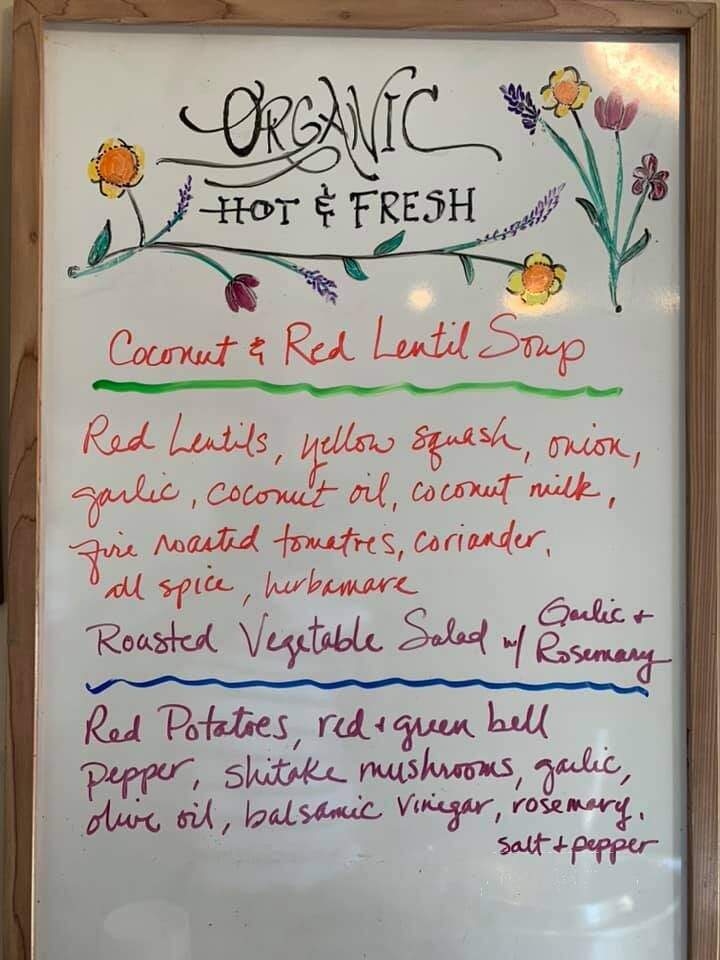 ORGANIC
HOT & FRESH
Coconut & Red Lentil Soup
Red Lentils, yellow squash, onion,
garlic, coconut oil, coconut milk,
fire roasted tomatoes, coriander,
all spice, herbamare
Roasted Vegetable Salad w/ Garlic + Rosemary
Red Potatoes, red + green bell
pepper, shitake mushrooms, garlic,
olive oil, balsamic vinegar, rosemary,
salt + pepper